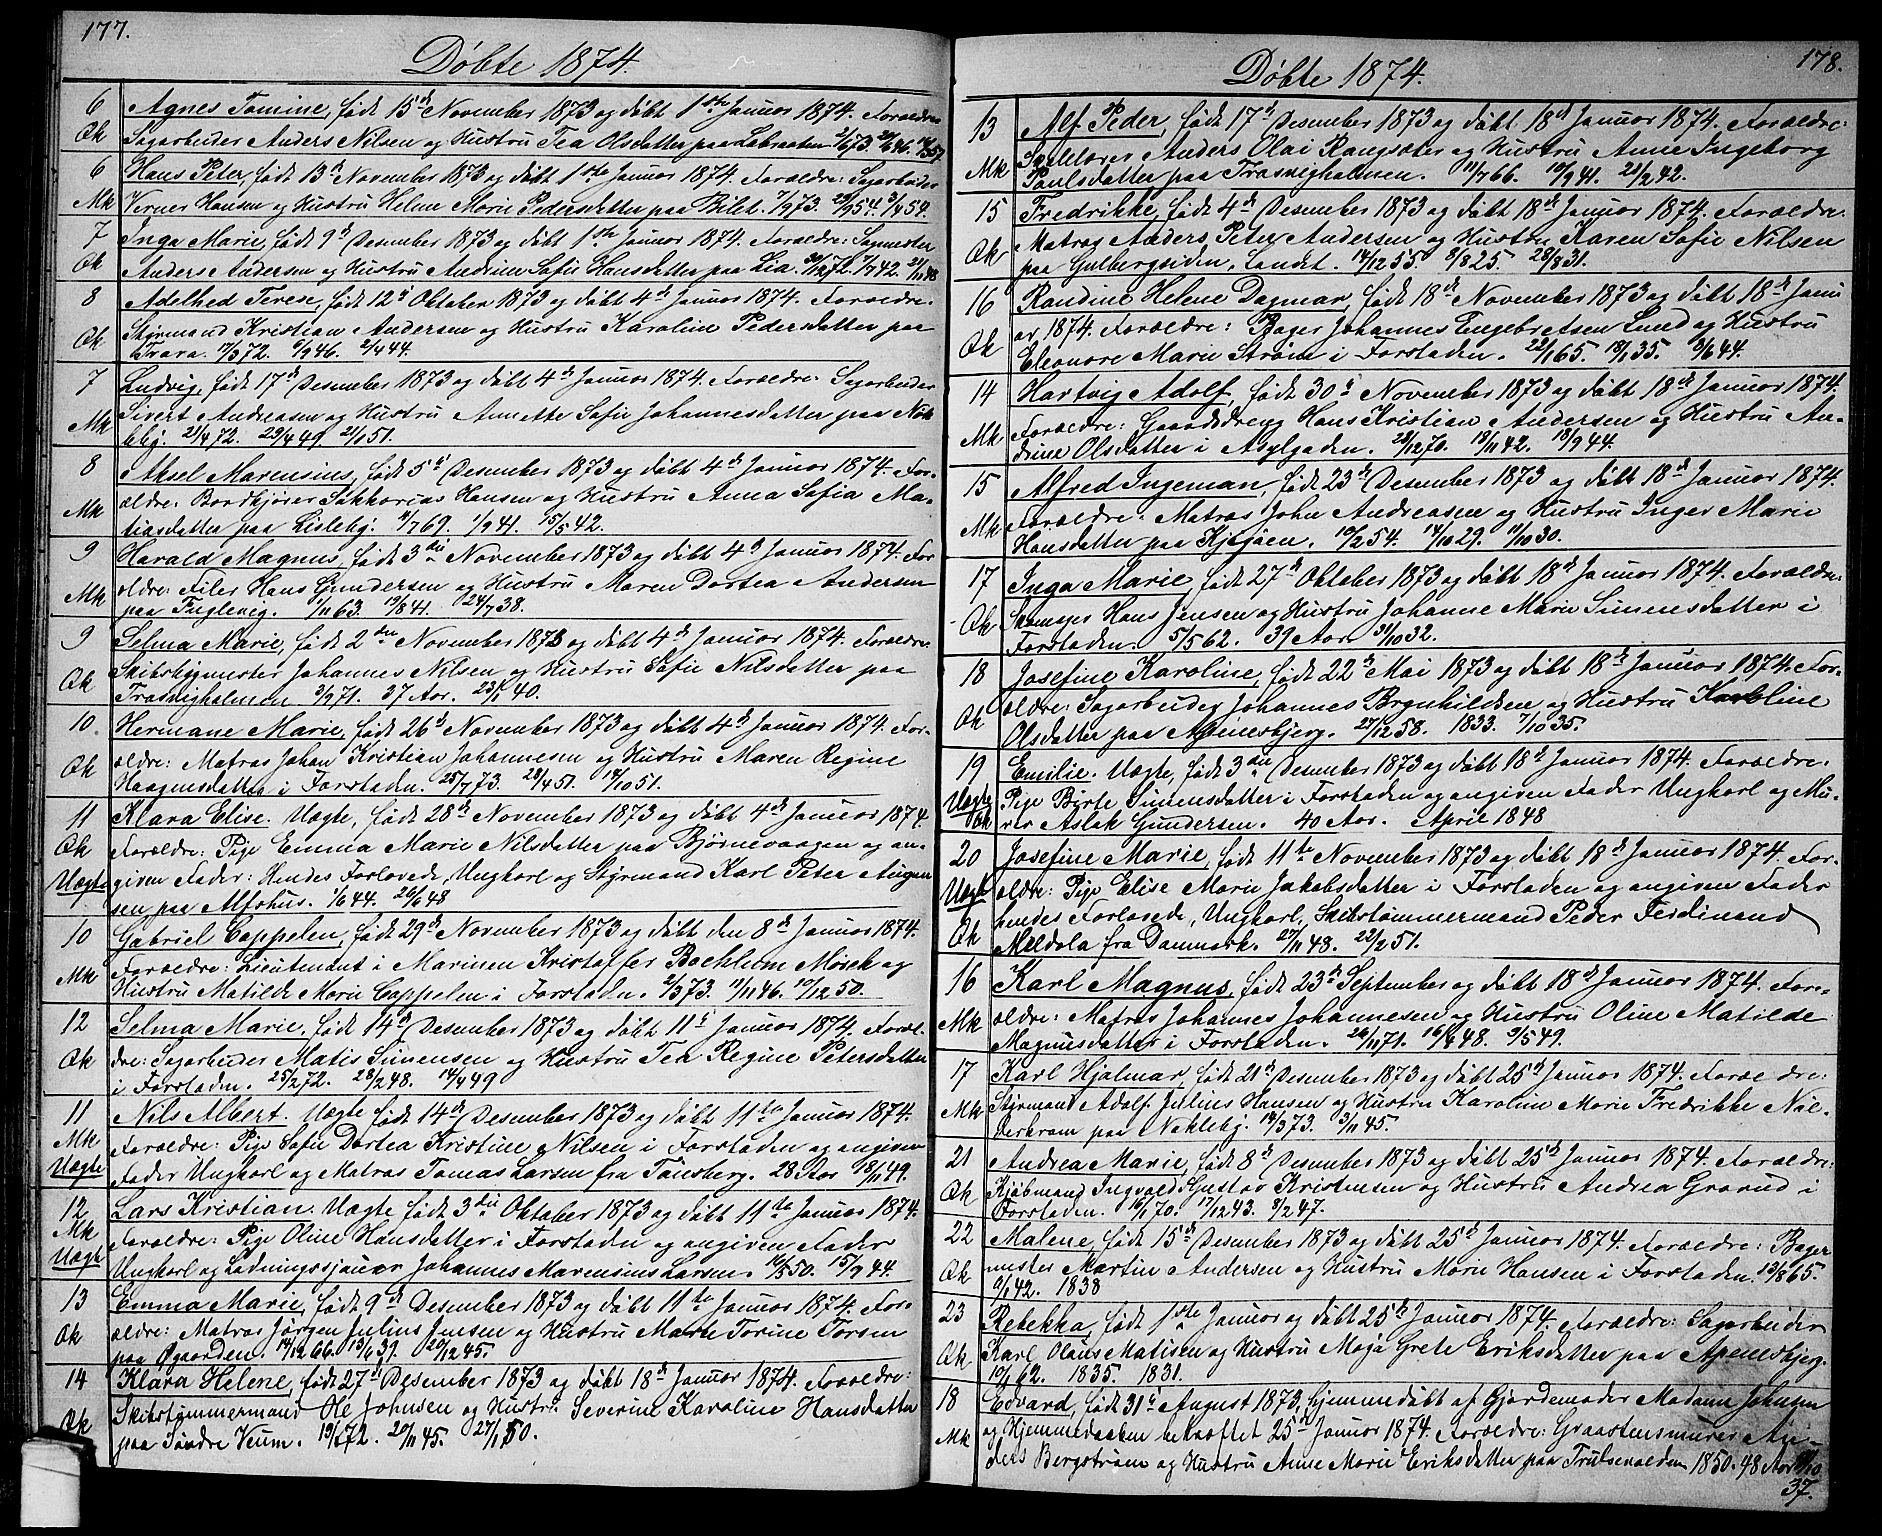 177.
Döbte 1874.
6 Agnes Tomine, födt 15de November 1873 og döbt 1ste Januar 1874. Foræeldre
Qk Sagarbeider Anders Nilsen og Hustru Tea Olsdatter paa
6 Hans Peter, födt 13de November 1873 og döbt 1ste Januar 1874. Foræeldre: Sagarbeider
Mk Verner Hansen og Hustru Helene Marie Pedersdatter paa Bilet. 7/9 73.
7 Inga Marie, födt 9de Desember 1873 og döbt 1ste Januar 1874. Foræeldre: Sagmester
Qk Anders Andersen og Hustru Andrine Sofie Hansdatter paa Lia.
8 Adelhed Terese, födt 12te Oktober 1873 og döbt 4de Januar 1874. Foræeldre:
Qk Styrmand Kristian Andersen og Hustru Karoline Pedersdatter paa
Trara. 17/3 72. 6/9 46. 2/4 44.
7 Ludvig, födt 17de Desember 1873 og döbt 4de Januar 1874. Foræeldre: Sagarbeider
Mk Sivert Andreasen og Hustru Annette Sofie Johannesdatter paa Nok
leby. 21/4 72. 29/4 49. 21/1 51.
8 Aksel Marensius, födt 5te Desember 1873 og döbt 4de Januar 1874. For-
Mk ældre: Bordkjörer Sakkarias Hansen og Hustru Anna Sofia Ma-
tiasdatter paa Lisleby. 4/7 69. 1/9 41. 15/5 42.
9 Harald Magnus, födt 3die November 1873 og döbt 4de Januar 1874. For
Mk ældre: Filer Hans Gundersen og Hustru Maren Dortea Andersen
paa Fuglevig. 1/11 63. 19/8 41. 24/7 38.
9 Selma Marie, födt 2den November 1873 og döbt 4de Januar 1874. Foræeldre:
Qk Skibsbygmester Johannes Nilsen og Hustru Sofie Nilsdatter paa
Trosvighalmen 3/9 71. 37 Aar. 23/1 40.
10. Hermane Marie, födt 26de November 1873 og döbt 4de Januar 1874. For-
Qk ældre: Matros Johan Kristian Johannesen og Hustru Maren Regine
Haagensdatter i Forstaden. 25/7 73. 28/4 51. 18/10 51.
11 Klara Elise. Uægte, födt 28de November 1873 og döbt 4de Januar 1874.
Qk Foræeldre: Pige Emma Marie Nilsdatter paa Björnevaagen og an-
Uægte given Fader: Hendes Forlovede, Ungkarl og Styrmand Karl Peter Augen
sen, paa Alfshus. 1/6 44. 26/6 48
10 Gabriel Cappelen, födt 29de November 1873 og döbt den 8de Januar 1874.
Mk Foræeldre: Lieutenant i Marinen Kristoffer Mörch og
Hustru Matilde Marie Cappelen i Forstaden. 2/3 73. 17/11 46. 10/12 50.
12 Selma Marie, födt 14de Desember 1873 og döbt 11te Januar 1874. Foræl-
Qk dre: Sagarbeider Matis Simensen og Hustru Tea Regine Petersdatter
i Forstaden. 25/2 72. 28/2 48. 14/4 49
11 Nils Albert. Uægte födt 14de Desember 1873 og döbt 11te Januar 1874.
Mk Foræeldre: Pige Sofie Dortea Kristine Nilsen i Forstaden og angiven
Uægte Fader Ungkarl og Matros Tomas Larsen fra Tönsberg. 28 Aar 18/11 49.
12 Lars Kristian. Uægte födt 3die Oktober 1873 og döbt 11te Januar 1874.
Mk Foræeldre: Pige Oline Hansdatter i Forstaden og angiven Fader
Uægte Ungkarl og Ladningssjauer Johannes Marensius Larsen. 10/5 50. 15/9 44.
13 Emma Marie, födt 9de Desember 1873 og döbt 11te Januar 1874. For-
Qk ældre: Matros Jörgen Julius Jensen og Hustru Marte Torine Torsen
paa Ögaarden. 14/12 66. 13/6 39. 20/12 45.
14 Klara Helene, födt 27de Desember 1873 og döbt 18de Januar 1874. Foræeldre:
Qk Skibstömmermand Ole Johnsen og Hustru Severine Karoline Hansdatter
paa Söndre Veum. 19/1 72. 20/11 45. 27/1 50.
178.
Döbte 1874.
13 Alf Peder, födt 17de Desember 1873 og döbt 18de Januar 1874. Foræeldre:
Mk Anders Olai Rangsæter og Hustru Anne Ingeborg
Paulsdatter paa Trosvighalmen. 11/7 66. 19/9 41. 21/2 42.
15 Fredrikke, födt 4de Desember 1873 og döbt 18de Januar 1874. Foræeldre:
Qk Matros Anders Peter Andersen og Hustru Karen Sofie Nilsen
paa Gulbergsiden, Landet. 14/12 55. 8/8 25. 28/8 31.
16 Randine Helene Dagmar, födt 18de November 1873 og döbt 18de Janu
Qk ar 1874. Foræeldre: Bager Johannes Engebretsen Lund og Hustru
Eleonore Marie Ström i Forstaden. 22/1 65. 18/1 35. 3/6 44.
14 Hartvig Adolf, födt 30te November 1873 og döbt 18de Januar 1874.
Mk Foræeldre: Gaardsdreng Hans Kristian Andersen og Hustru An-
drina Olsdatter i Asylgaden. 28/12 70. 19/11 42. 18/9 44.
15 Alfred Ingeman, födt 23de Desember 1873 og döbt 18de Januar 1874.
Mk Foræeldre: Matros John Andreasen og Hustru Inger Marie
Hansdatter paa Kjögöen. 10/2 54. 14/10 29. 11/10 30.
17 Inga Marie, födt 27de Oktober 1873 og döbt 18de Januar 1874. Foræeldre:
Qk Skomager Hans Jensen og Hustru Johanne Marie Simensdatter i
Forstaden. 5/5 62. 39 Aar. 31/10 32.
18 Josefine Karoline, födt 22de Mai 1873 og döbt 18de Januar 1874. For-
Qk ældre: Sagarbeider Johannes Brynhildsen og Hustru Karoline
Olsdatter paa Apenesbjerg. 27/12 58. 1833. 7/10 35.
19 Emilie. Uægte, födt 3die Desember 1873 og döbt 18de Januar 1874. Foræeldre:
Uægte Pige Birte Simensdatter i Forstaden og angiven Fader Ungkarl og Mu-
Qk rer Aslak Gundersen. 40 Aar. April 1848
20 Josefine Marie, födt 11te November 1873 og döbt 18de Januar 1874. For-
Uægte ældre: Pige Elise Marie Jakobsdatter i Forstaden og angiven Fader
Qk hendes Forlovede, Ungkarl, Skibstömmermand Peder Ferdinand
Meldola fra Danmark. 27/11 48. 22/2 51.
16 Karl Magnus, födt 23de September og döbt 18de Januar 1874. For-
Mk ældre: Matros Johannes Johannesen og Hustru Oline Matilde
Magnusdatter i Forstaden. 26/11 71. 16/6 48. 9/5 49.
17 Karl Hjalmar, födt 21de Desember 1873 og döbt 25de Januar 1874. Foræeldre:
Mk Styrmand Adolf Julius Hansen og Hustru Karoline Marie Fredrikke Næl-
derkram paa Nokleby. 18/3 73. 3/11 45.
21 Andrea Marie, födt 8de Desember 1873 og döbt 25de Januar 1874. Foræeldre:
Qk Kjöbmand Ingvald Gustav Kristensen og Hustru Andrea Grorud i
Forstaden. 16/1 70. 17/12 43. 9/2 47.
22 Malene, födt 15de Desember 1873 og döbt 25de Januar 1874. Foræeldre: Bager
Qk mester Martin Andersen og Hustru Marie Hansen i Forstaden. 13/8 65.
9/1 42. 1838
23 Rebekka, födt 1ste Januar og döbt 25de Januar 1874. Foræeldre: Sagarbeider
Qk Karl Olaus Matisen og Hustru Maja Grete Eriksdatter paa Apenesbjerg.
10/1 62. 1835. 1831.
18 Edvard, födt 31te August 1873, hjemmedöbt af Gjordemoder Madam Johnsen
Mk og Hjemmedaaben bekræftet 25de Januar 1874. Foræeldre: Graastensmurer An-
ders Bergström og Hustru Anne Marie Eriksdatter paa Trulsevolden 1850. 48 Aar
37.